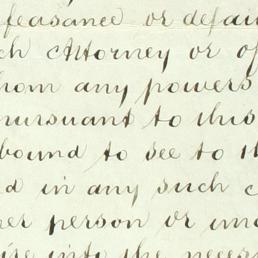 feasance or defau
ch Attorney or of
hom any powers
pursuant to this
bound to see to th
d in any such c
her person or un
into the necess